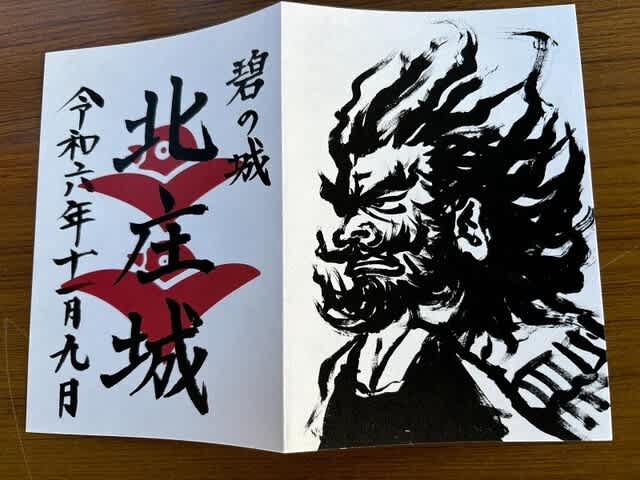 碧の城
北庄城
令和六年十一月九日